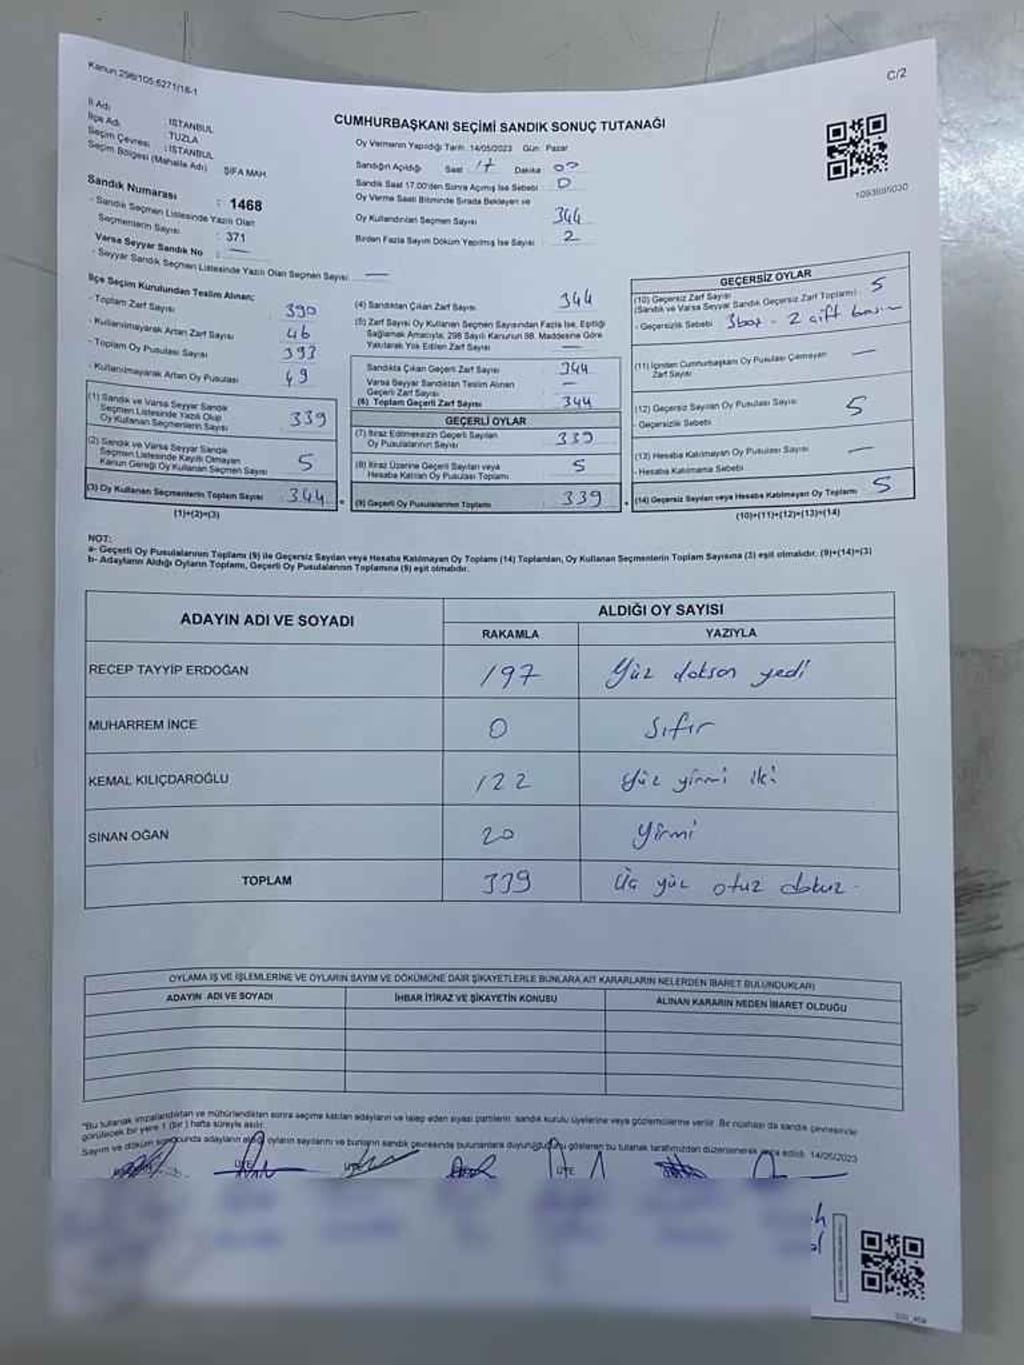 Kanun:298/105-6271/18-1
C/2
İl Adı : İSTANBUL
İlçe Adı : TUZLA
Seçim Çevresi : İSTANBUL
Seçim Bölgesi (Mahalle Adı) ŞİFA MAH
Sandık Numarası : 1468
- Sandık Seçmen Listesinde Yazılı Olan Seçmenlerin Sayısı : 371
Varsa Seyyar Sandık No : —
- Seyyar Sandık Seçmen Listesinde Yazılı Olan Seçmen Sayısı: —
CUMHURBAŞKANI SEÇİMİ SANDIK SONUÇ TUTANAĞI
Oy Vermenin Yapıldığı Tarih: 14/05/2023 Gün: Pazar
Sandığın Açıldığı Saat 17 Dakika 00
Sandık Saat 17.00'den Sonra Açılmış İse Sebebi 0
Oy Verme Saati Bitiminde Sırada Bekleyen ve
Oy Kullandırılan Seçmen Sayısı 344
Birden Fazla Sayım Döküm Yapılmış İse Sayısı : 2
İlçe Seçim Kurulundan Teslim Alınan;
- Toplam Zarf Sayısı : 390
- Kullanılmayarak Artan Zarf Sayısı : 46
- Toplam Oy Pusulası Sayısı : 393
- Kullanılmayarak Artan Oy Pusulası : 49
(1) Sandık ve Varsa Seyyar Sandık
Seçmen Listesinde Yazılı Olup
Oy Kullanan Seçmenlerin Sayısı : 339
(2) Sandık ve Varsa Seyyar Sandık
Seçmen Listesinde Kayıtlı Olmayan
Kanun Gereği Oy Kullanan Seçmen Sayısı : 5
(3) Oy Kullanan Seçmenlerin Toplam Sayısı : 344
(1)+(2)=(3)
(4) Sandıktan Çıkan Zarf Sayısı : 344
(5) Zarf Sayısı Oy Kullanan Seçmen Sayısından Fazla İse, Eşitliği
Sağlamak Amacıyla; 298 Sayılı Kanunun 98. Maddesine Göre
Yakılarak Yok Edilen Zarf Sayısı —
Sandıkta Çıkan Geçerli Zarf Sayısı : 344
Varsa Seyyar Sandıktan Teslim Alınan
Geçerli Zarf Sayısı —
(6) Toplam Geçerli Zarf Sayısı : 344
GEÇERLİ OYLAR
(7) İtiraz Edilmeksizin Geçerli Sayılan
Oy Pusulalarının Sayısı : 339
(8) İtiraz Üzerine Geçerli Sayılan veya
Hesaba Katılan Oy Pusulası Toplamı : 5
(9) Geçerli Oy Pusulalarının Toplamı : 339
GEÇERSİZ OYLAR
(10) Geçersiz Zarf Sayısı
(Sandık ve Varsa Seyyar Sandık Geçersiz Zarf Toplamı) : 5
- Geçersizlik Sebebi : 3boş - 2 çift basım
(11) İçinden Cumhurbaşkanı Oy Pusulası Çıkmayan
Zarf Sayısı : —
(12) Geçersiz Sayılan Oy Pusulası Sayısı : 5
- Geçersizlik Sebebi :
(13) Hesaba Katılmayan Oy Pusulası Sayısı : —
- Hesaba Katılmama Sebebi
(14) Geçersiz Sayılan veya Hesaba Katılmayan Oy Toplamı : 5
(10)+(11)+(12)+(13)=(14)
NOT:
a- Geçerli Oy Pusulalarının Toplamı (9) ile Geçersiz Sayılan veya Hesaba Katılmayan Oy Toplamı (14) Toplamları, Oy Kullanan Seçmenlerin Toplam Sayısına (3) eşit olmalıdır. (9)+(14)=(3)
b- Adayların Aldığı Oyların Toplamı, Geçerli Oy Pusulalarının Toplamına (9) eşit olmalıdır.
ADAYIN ADI VE SOYADI
ALDIĞI OY SAYISI
RAKAMLA YAZIYLA
RECEP TAYYİP ERDOĞAN 197 Yüz doksan yedi
MUHARREM İNCE 0 Sıfır
KEMAL KILIÇDAROĞLU 122 Yüz yirmi iki
SİNAN OĞAN 20 Yirmi
TOPLAM 339 Üç yüz otuz dokuz
OYLAMA İŞ VE İŞLEMLERİNE VE OYLARIN SAYIM VE DÖKÜMÜNE DAİR ŞİKAYETLERLE BUNLARA AİT KARARLARIN NELERDEN İBARET BULUNDUKLARI
ADAYIN ADI VE SOYADI İHBAR İTİRAZ VE ŞİKAYETİN KONUSU ALINAN KARARIN NEDEN İBARET OLDUĞU
"Bu tutanak imzalandıktan ve mühürlendikten sonra seçime katılan adayların ve talep eden siyasi partilerin sandık kurulu üyelerine veya gözlemcilerine verilir. Bir nüshası da sandık çevresinde
görülecek bir yere 1 (bir) hafta süreyle asılır.
Sayım ve döküm sonucunda adayların aldığı oyların sayılarını ve bunların sandık çevresinde bulunanlara duyurulduğunu gösteren bu tutanak tarafımızdan düzenlenerek imza edildi. 14/05/2023
ÜYE
ÜYE